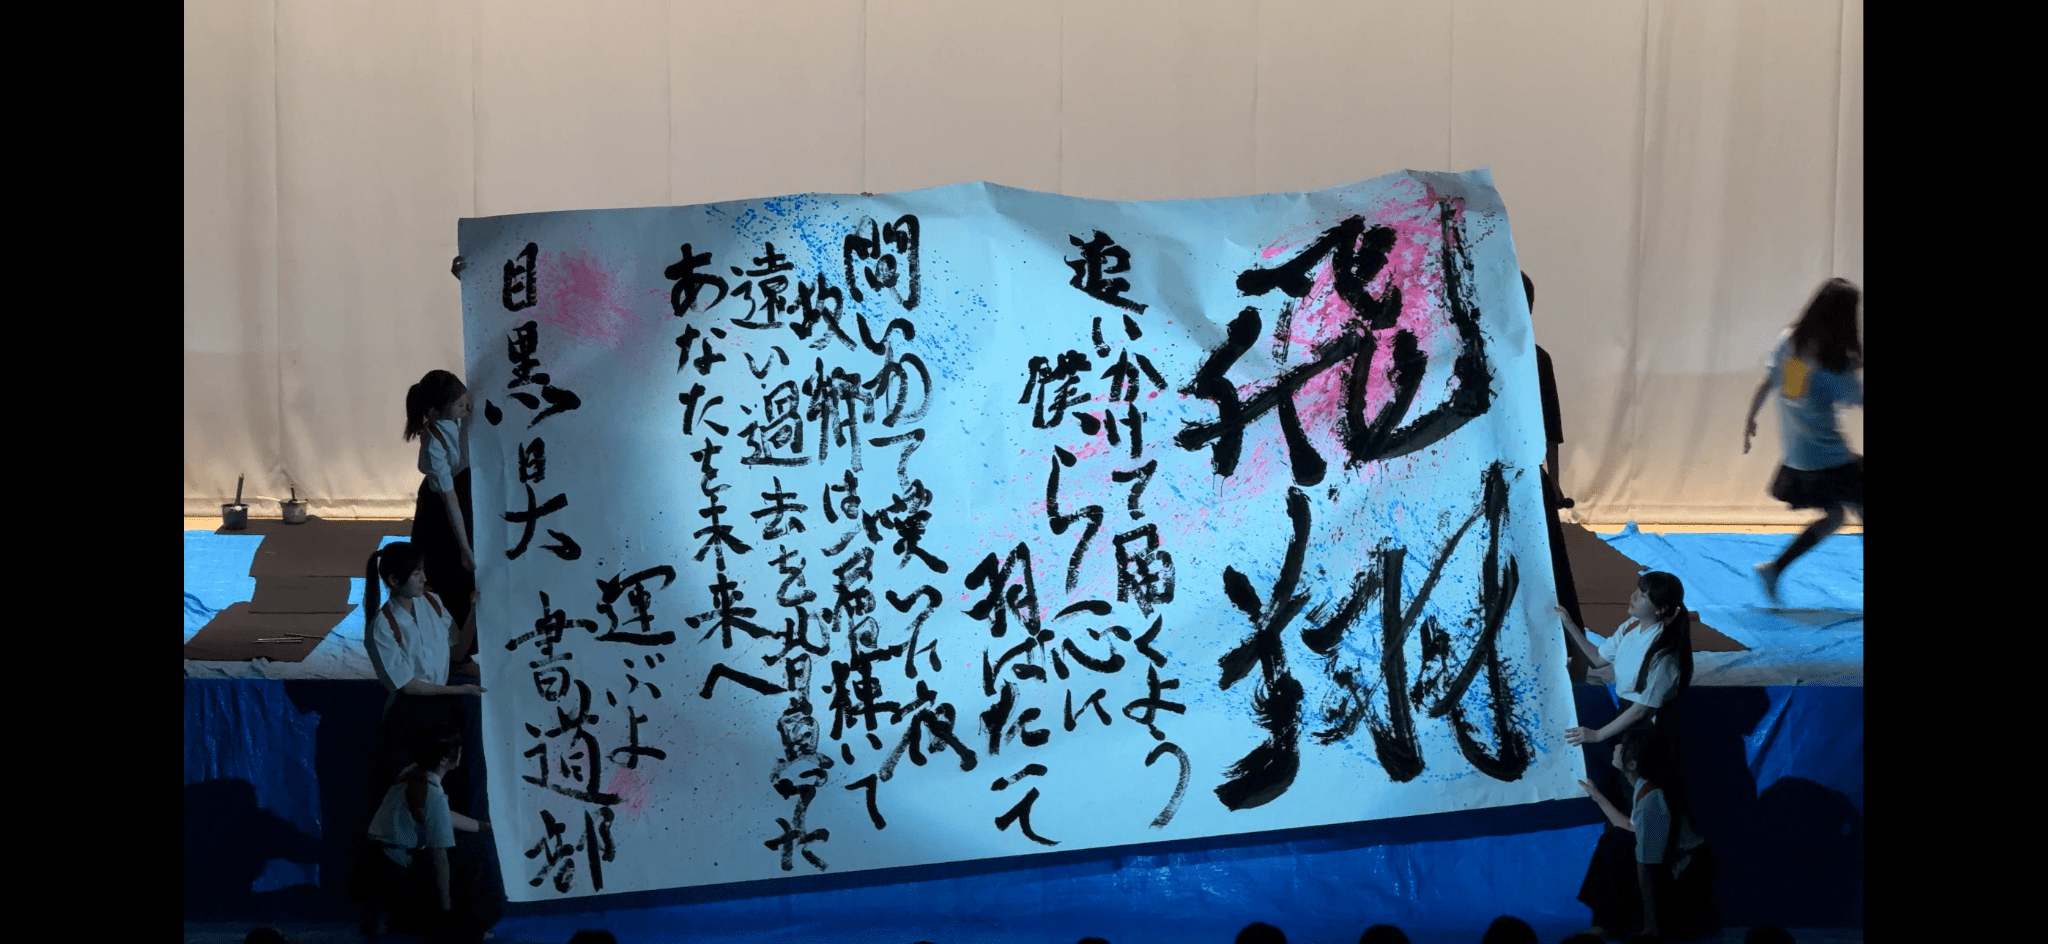 飛翔
追いかけて届くよう
僕ら一心に
羽ばたいて
問いかけて嘆いた夜
故郷は一層輝いて
遠い過去を背負ってた
あなたを未来へ
運ぶよ
目黒日大 書道部